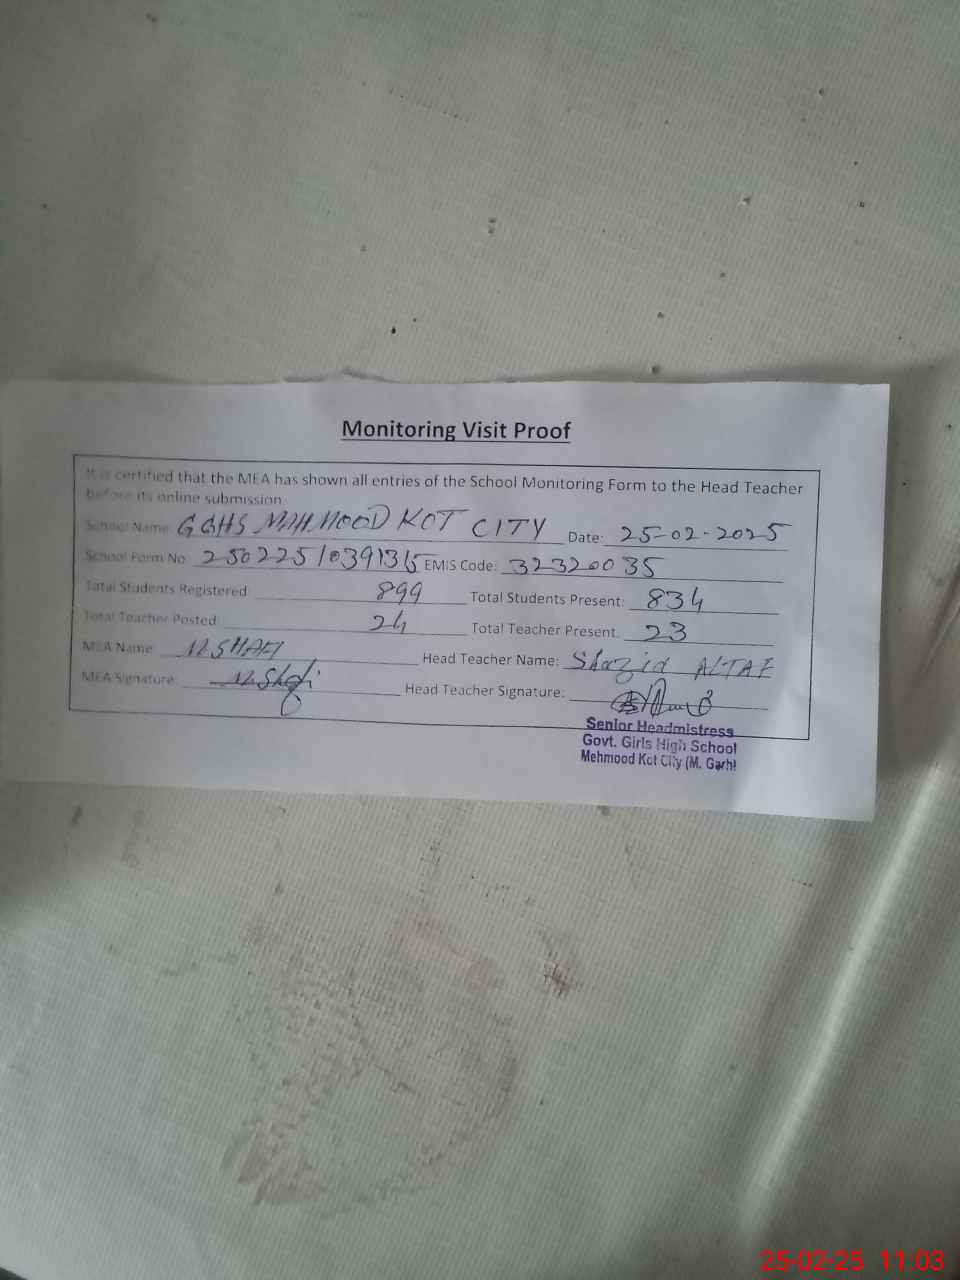 Monitoring Visit Proof
It is certified that the MEA has shown all entries of the School Monitoring Form to the Head Teacher
before its online submission
School Name: GGHS MAHMOOD KOT CITY Date: 25-02-2025
School Form No: 25022510391315 EMIS Code: 32320035
Total Students Registered 899 Total Students Present: 834
Total Teacher Posted 24 Total Teacher Present: 23
MEA Name: M.SHAFI Head Teacher Name: Shazia ALTAF
MEA Signature: M.Shafi Head Teacher Signature:
Senior Headmistress
Govt. Girls High School
Mehmood Kot City (M. Garh)
25-02-25 11:03